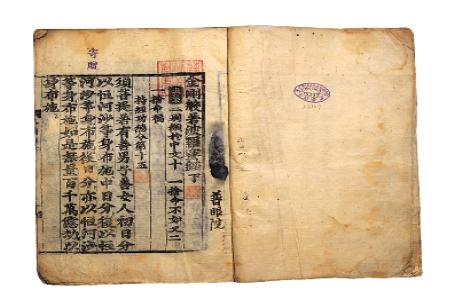 普眼院
金剛般若波羅蜜經下
持經功德分第十五
須菩提若有善男子善女人初日分
以恒河沙等身布施中日分復以恒
河沙等身布施後日分亦以恒河沙
等身布施如是無量百千萬億劫以
身布施
寄贈